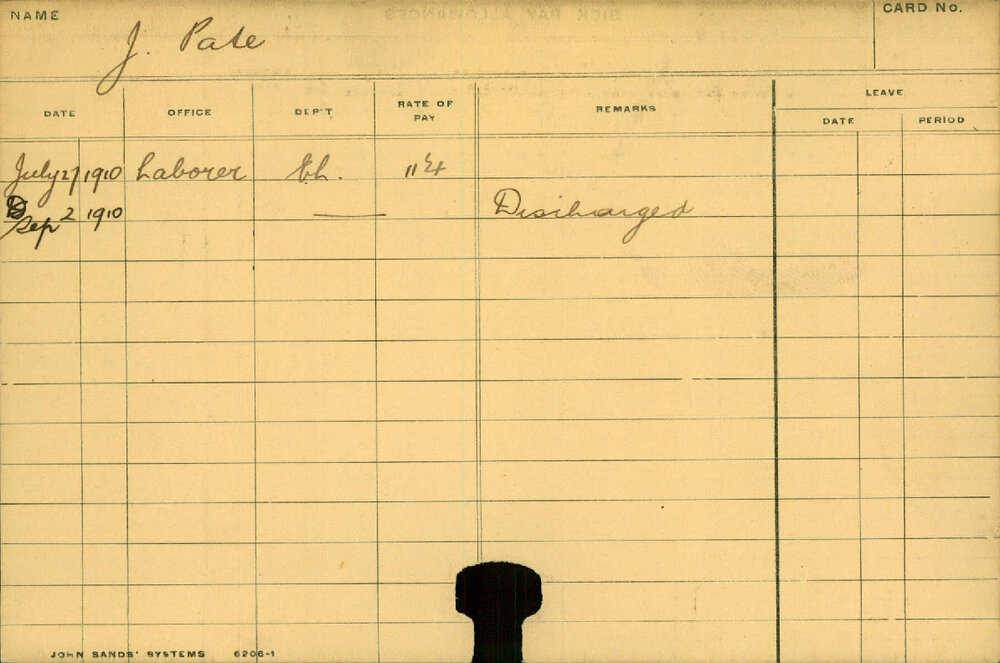 NAME J. Pate CARD No.
DATE OFFICE DEP'T RATE OF PAY REMARKS LEAVE
DATE PERIOD
July 27 1910 Laborer
Sep 2 1910 — Discharged
JOHN SANDS' SYSTEMS 6206-1